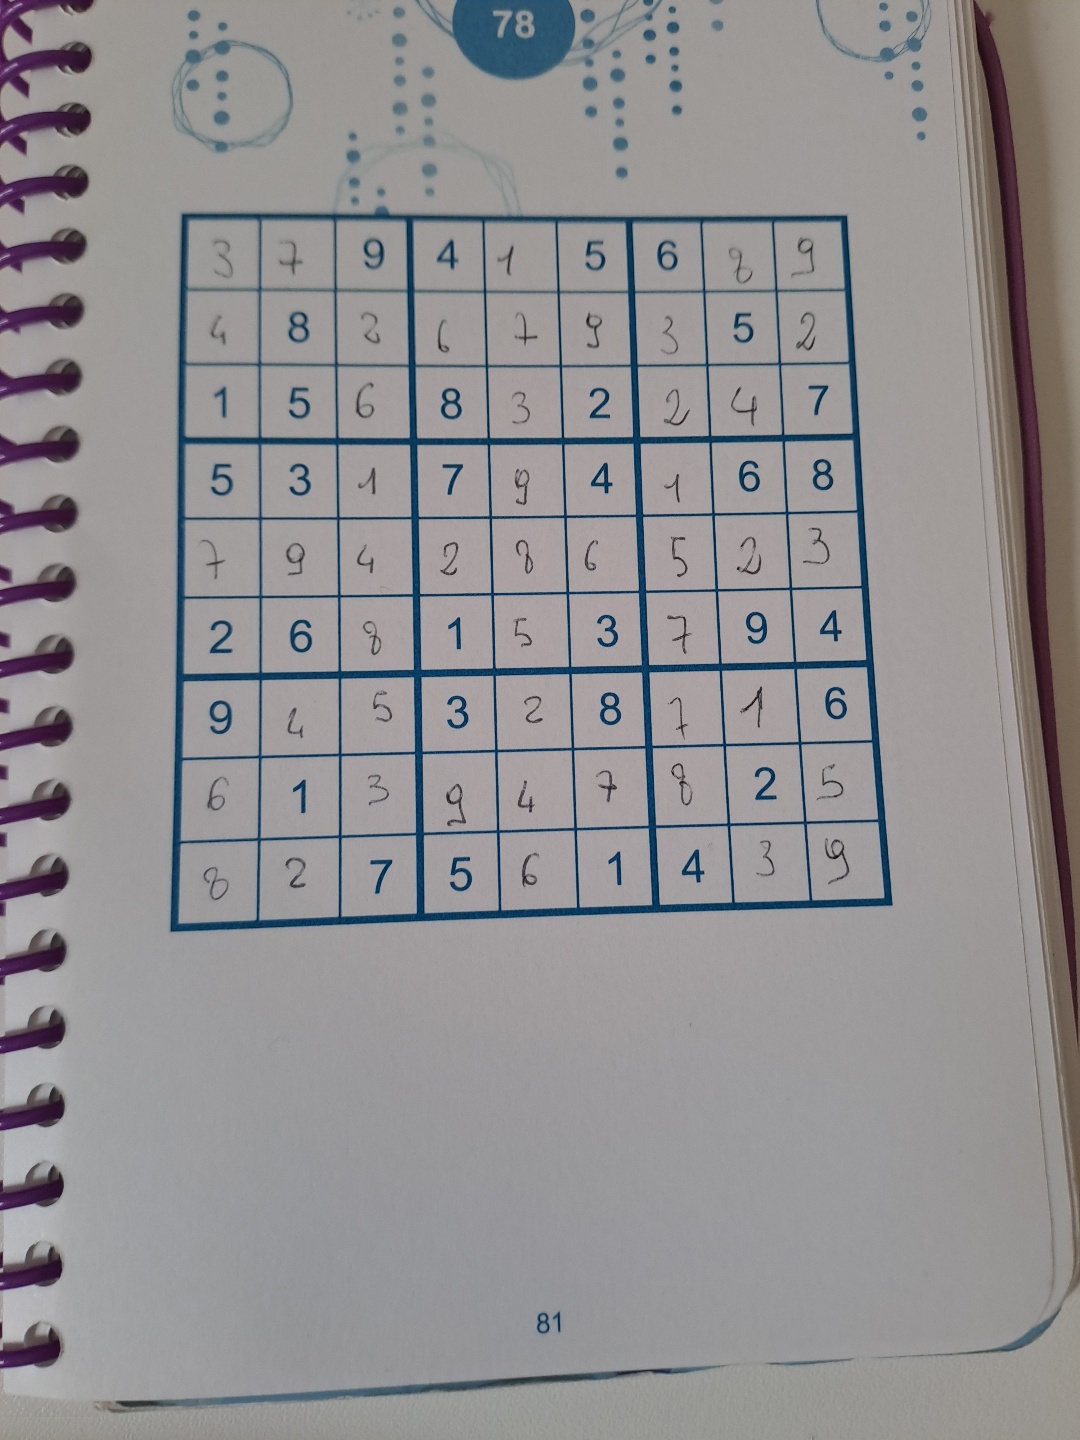 78
3 7 9 4 1 5 6 8 9
4 8 2 6 7 9 3 5 2
1 5 6 8 3 2 2 4 7
5 3 1 7 9 4 1 6 8
7 9 4 2 8 6 5 2 3
2 6 8 1 5 3 7 9 4
9 4 5 3 2 8 7 1 6
6 1 3 9 4 7 8 2 5
8 2 7 5 6 1 4 3 9
81